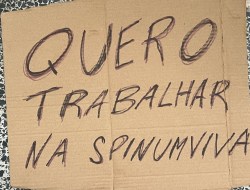 QUERO
TRABALHAR
NA SPINUMVIVA